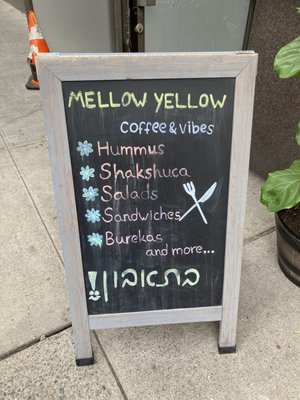 MELLOW YELLOW
coffee & vibes
Hummus
Shakshuca
Salads
Sandwiches
Burekas
and more...
בתאבון!!